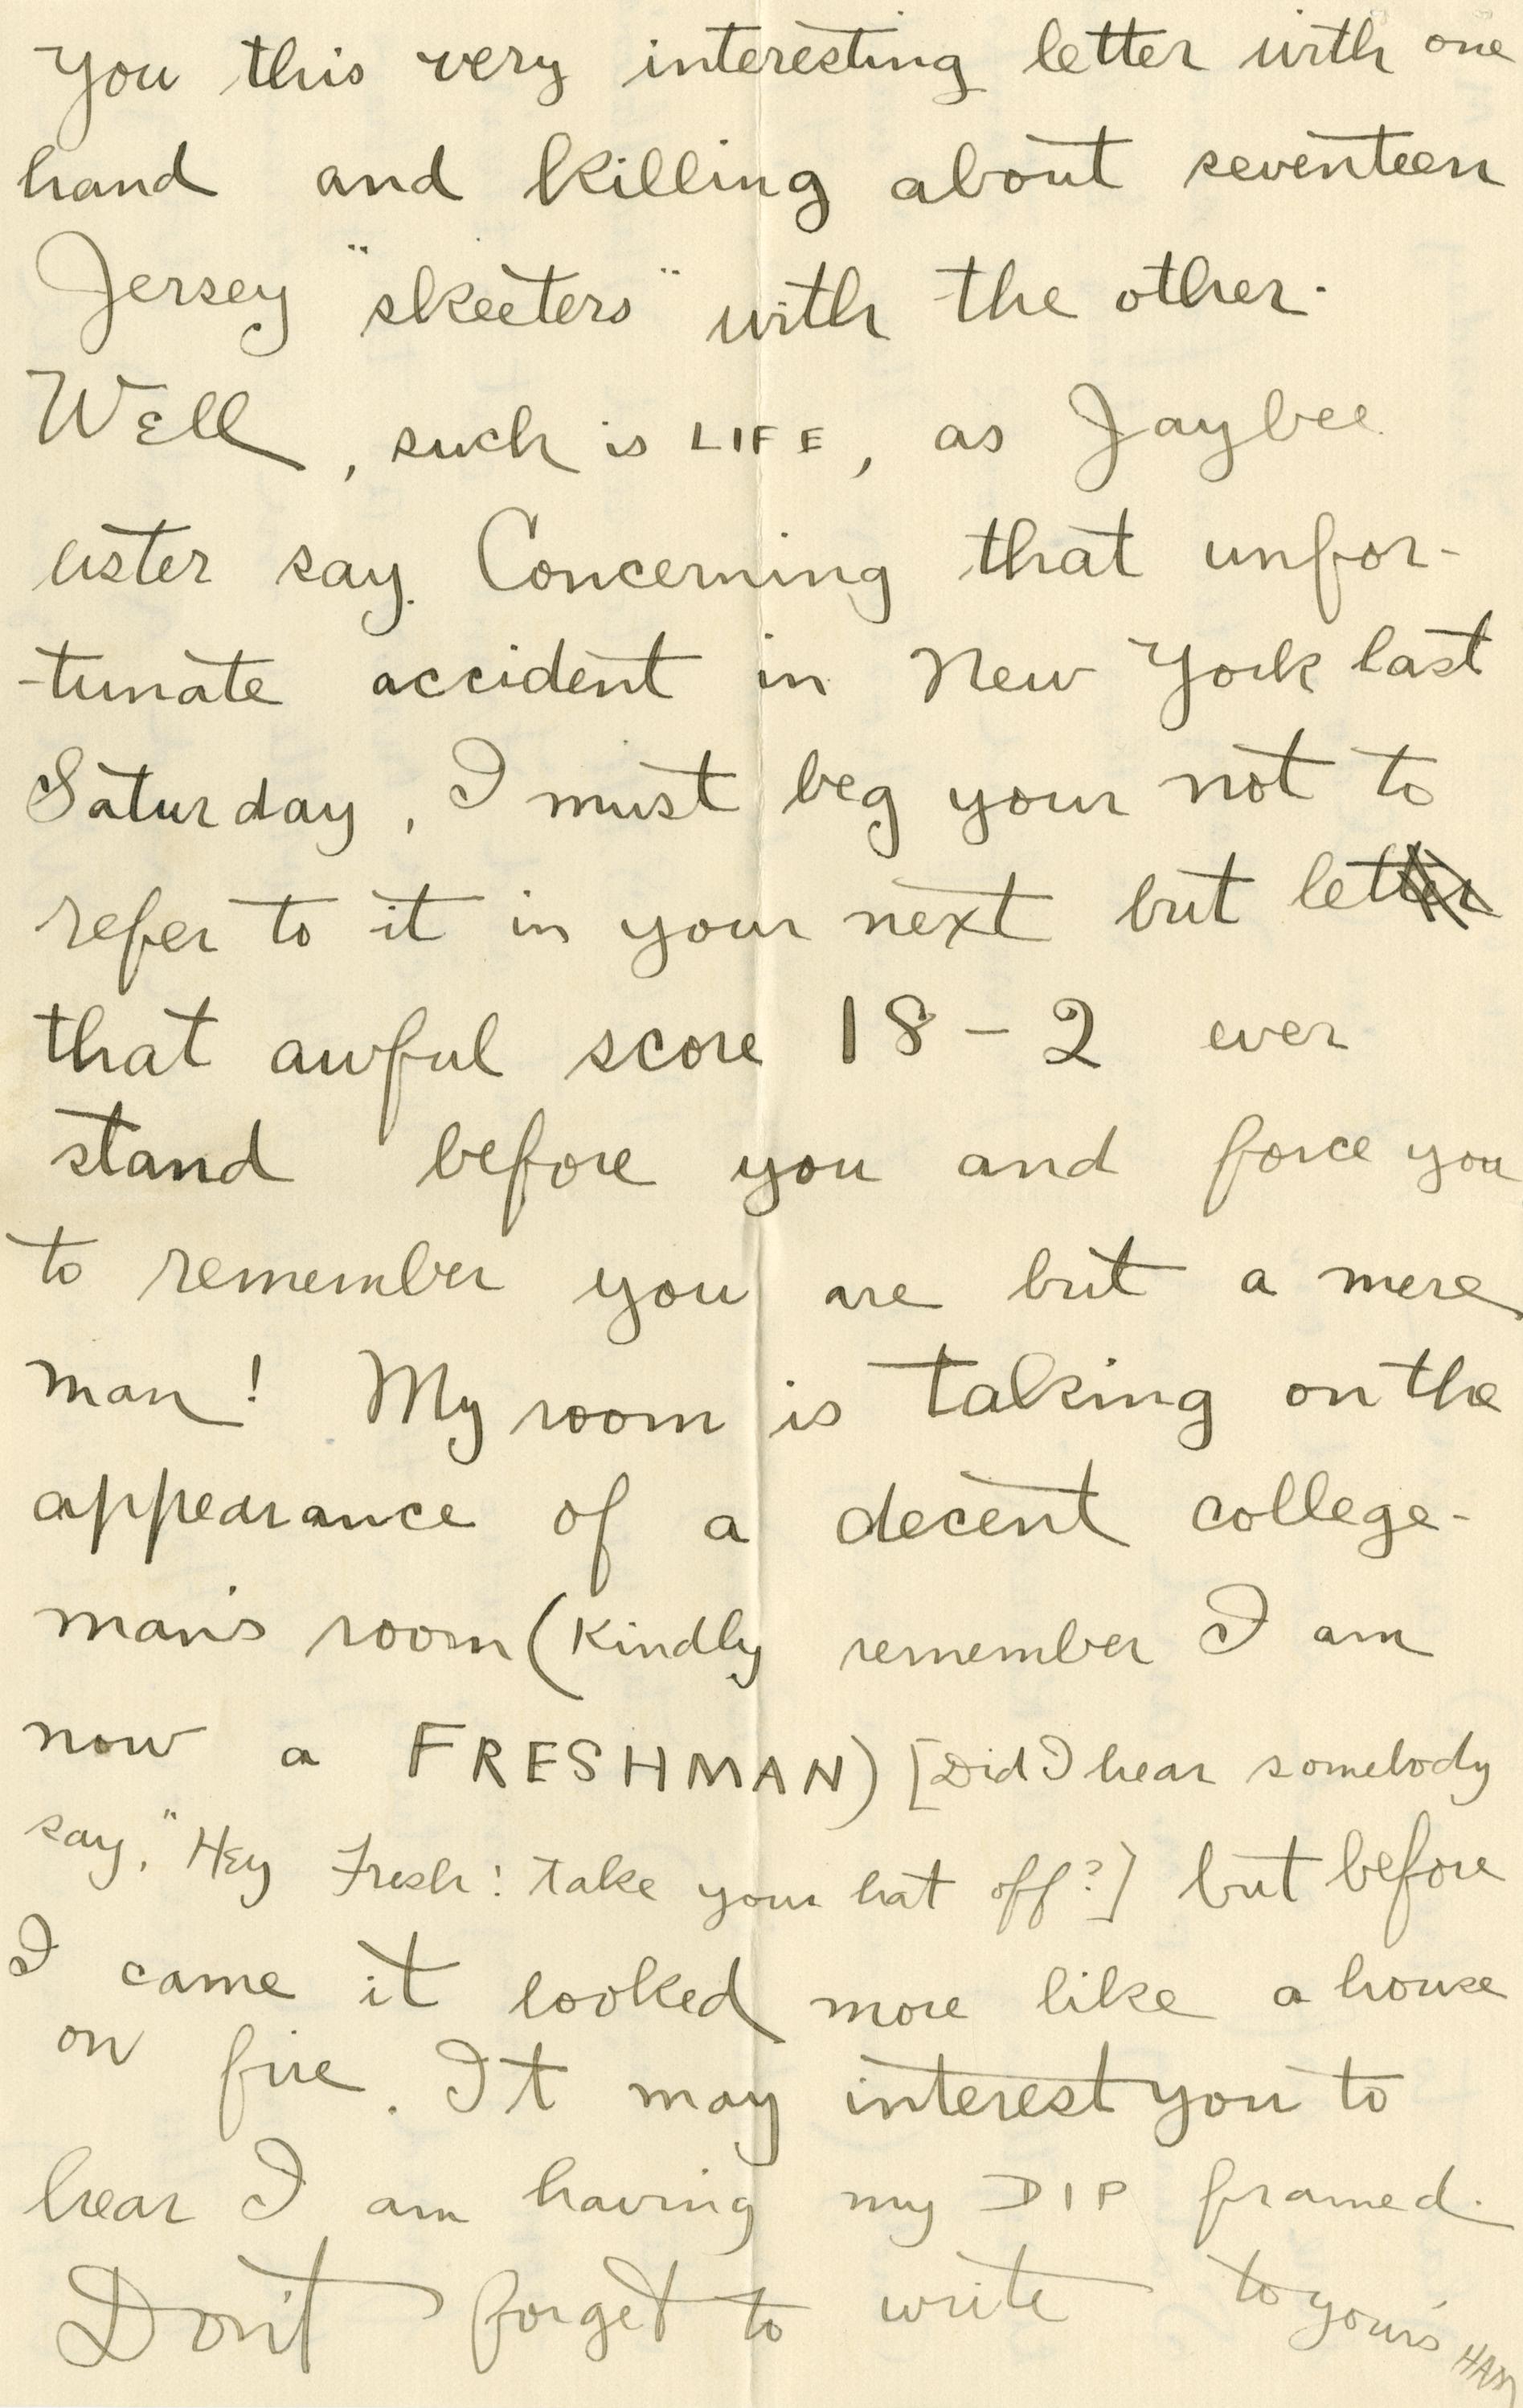 you this very interesting letter with one
hand and killing about seventeen
Jersey "skeeters" with the other.
Well, such is LIFE, as Jaybee
uster say. Concerning that unfor-
-tunate accident in New York last
Saturday, I must beg your not to
refer to it in your next but let
that awful score 18-2 ever
stand before you and force you
to remember you are but a mere
man! My room is taking on the
appearance of a decent college-
man's room (Kindly remember I am
now a FRESHMAN) [Did I hear somebody
say, "Hey Fresh! take your hat off?] but before
I came it looked more like a house
on fire. It may interest you to
hear I am having my DIP framed.
Don't forget to write to yours
HAM